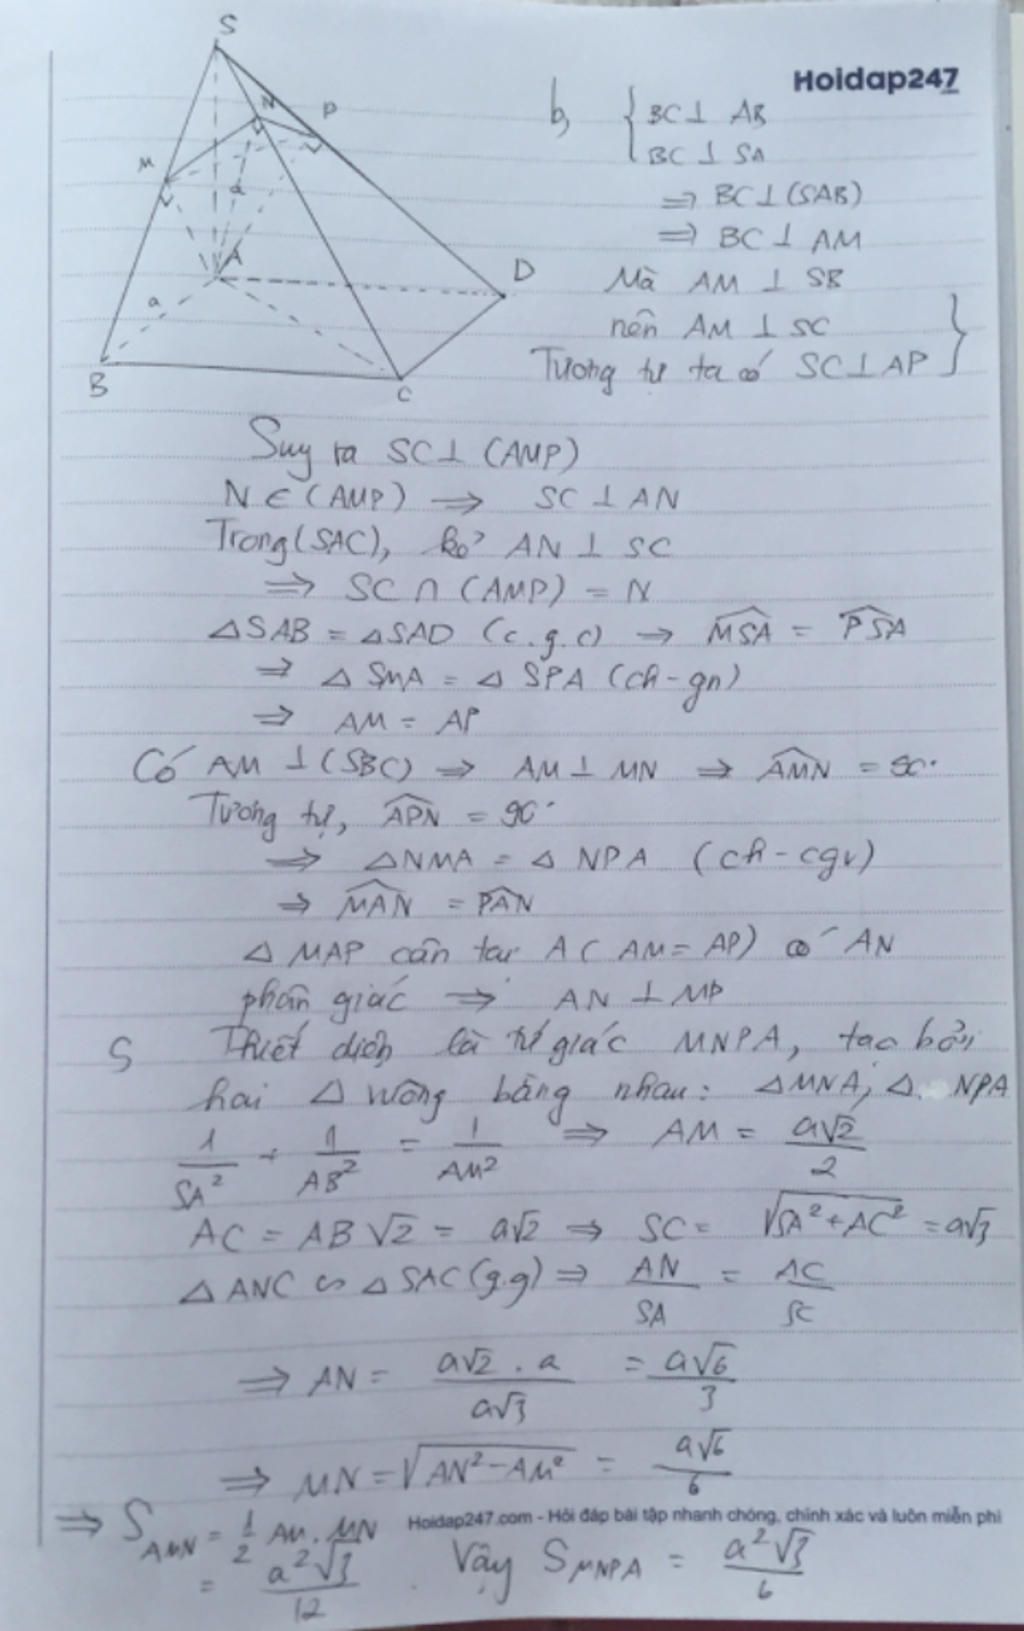 S
N
P
M
a
A
D
a
B
C
Hoidap247
b, { BC ⊥ AB
BC ⊥ SA
⇒ BC ⊥ (SAB)
⇒ BC ⊥ AM
Mà AM ⊥ SB
nên AM ⊥ SC
Tương tự ta có SC ⊥ AP }
Suy ra SC ⊥ (AMP)
N ∈ (AMP) ⇒ SC ⊥ AN
Trong (SAC), kẻ AN ⊥ SC
⇒ SC ∩ (AMP) = N
△SAB = △SAD (c.g.c) → \widehat{MSA} = \widehat{PSA}
⇒ △SMA = △SPA (ch-gn)
⇒ AM = AP
Có AM ⊥ (SBC) ⇒ AM ⊥ MN ⇒ \widehat{AMN} = 90°
Tương tự, \widehat{APN} = 90°
⇒ △NMA = △NPA (ch-cgv)
⇒ \widehat{MAN} = \widehat{PAN}
△MAP cân tại A (AM = AP) có AN
phân giác ⇒ AN ⊥ MP
S Thiết diện là tứ giác MNPA, tạo bởi
hai △ vuông bằng nhau: △MNA, △NPA
1/SA² + 1/AB² = 1/AM² ⇒ AM = a√2/2
AC = AB√2 = a√2 ⇒ SC = √(SA² + AC²) = a√3
△ANC ∽ △SAC (g.g) ⇒ AN/SA = AC/SC
⇒ AN = a√2 . a/a√3 = a√6/3
⇒ MN = √(AN² - AM²) = a√6/6
⇒ S_AMN = 1/2 AM . MN
Hoidap247.com - Hỏi đáp bài tập nhanh chóng, chính xác và luôn miễn phí
= a²√3/12 . Vậy S_MNPA = a²√3/6